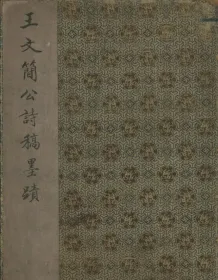 王文簡公詩稿墨蹟